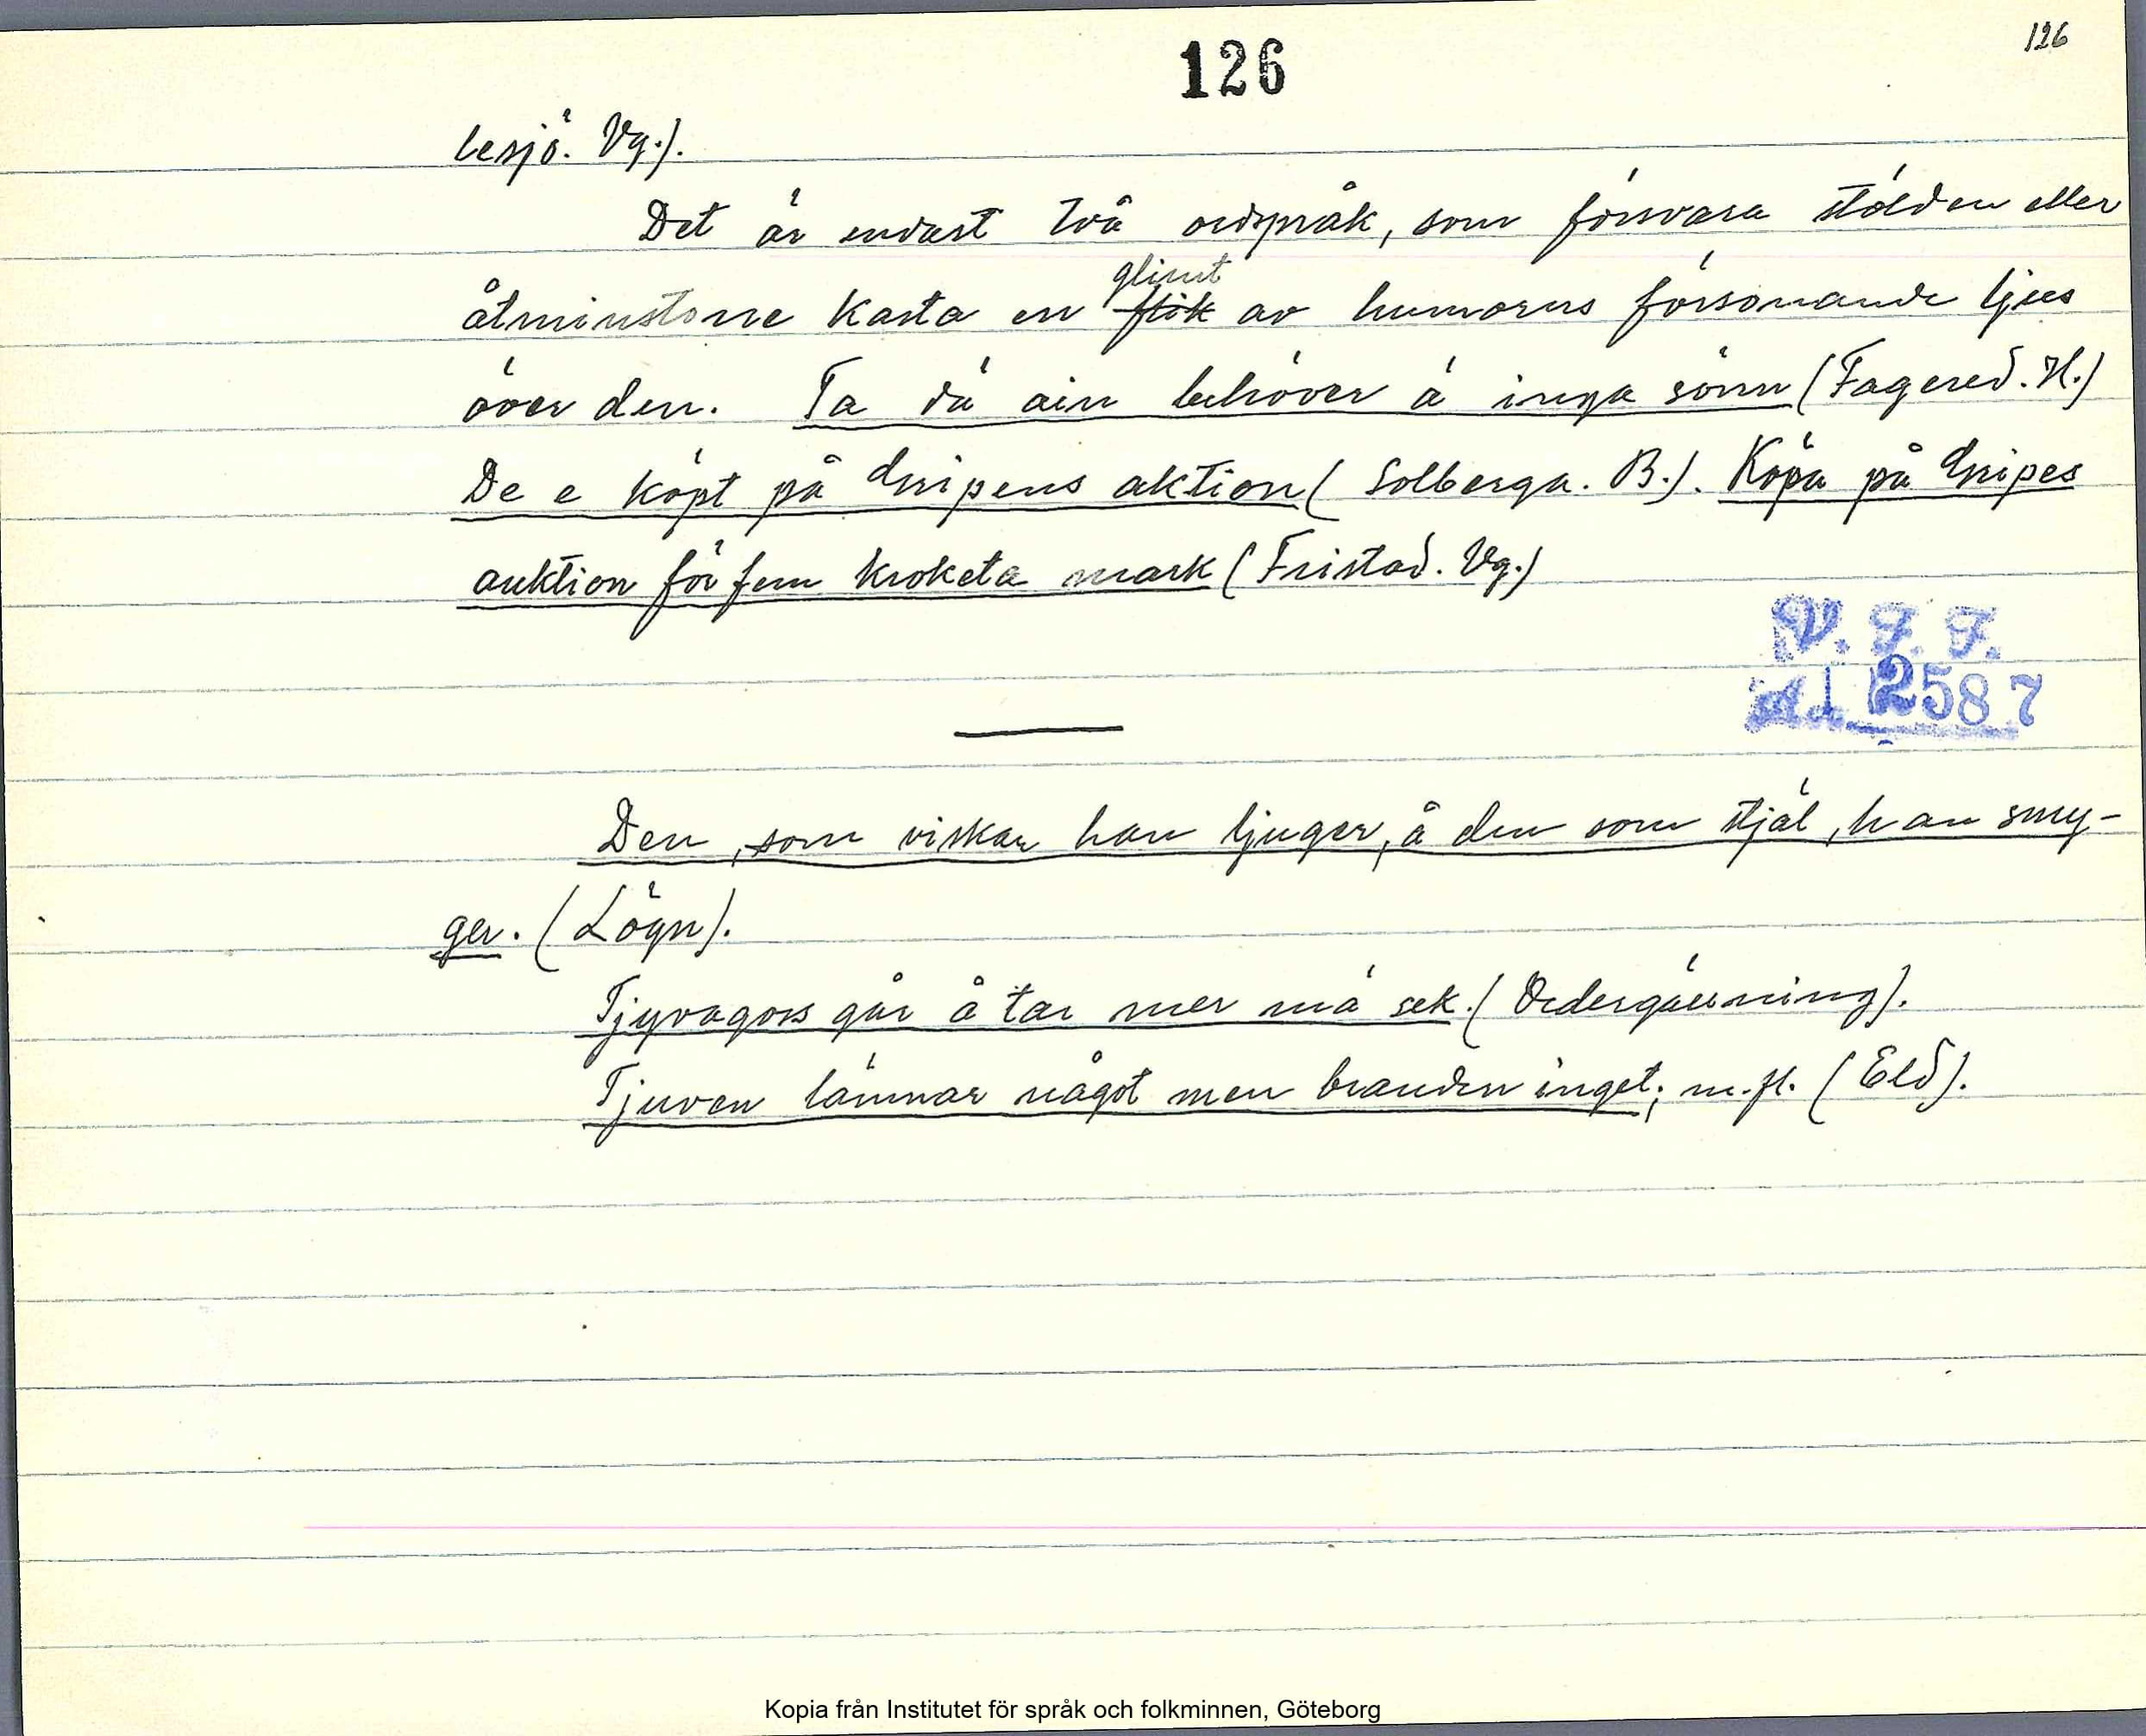 126
126
lesjö. Vg.).
Det är endast två ordspråk, som försvara stölden eller
glimt
åtminstone kasta en flik av humorns försonande ljus
över den. Ta dä ain behöver ä inga sönn (Fagered. H.)
De e köpt på Gripens aktion (Solberga. B.). Köpa på Gripes
auktion för fem kroketa mark (Fristad. Vg.)
V. F. F.
2587
Den, som viskar han ljuger, å den som stjäl, han smy-
ger. (Lögn).
Tjyvagos går å tar mer mä sek. (Vedergällning).
Tjuven lämnar något men branden inget; m.fl. (Eld).
Kopia från Institutet för språk och folkminnen, Göteborg